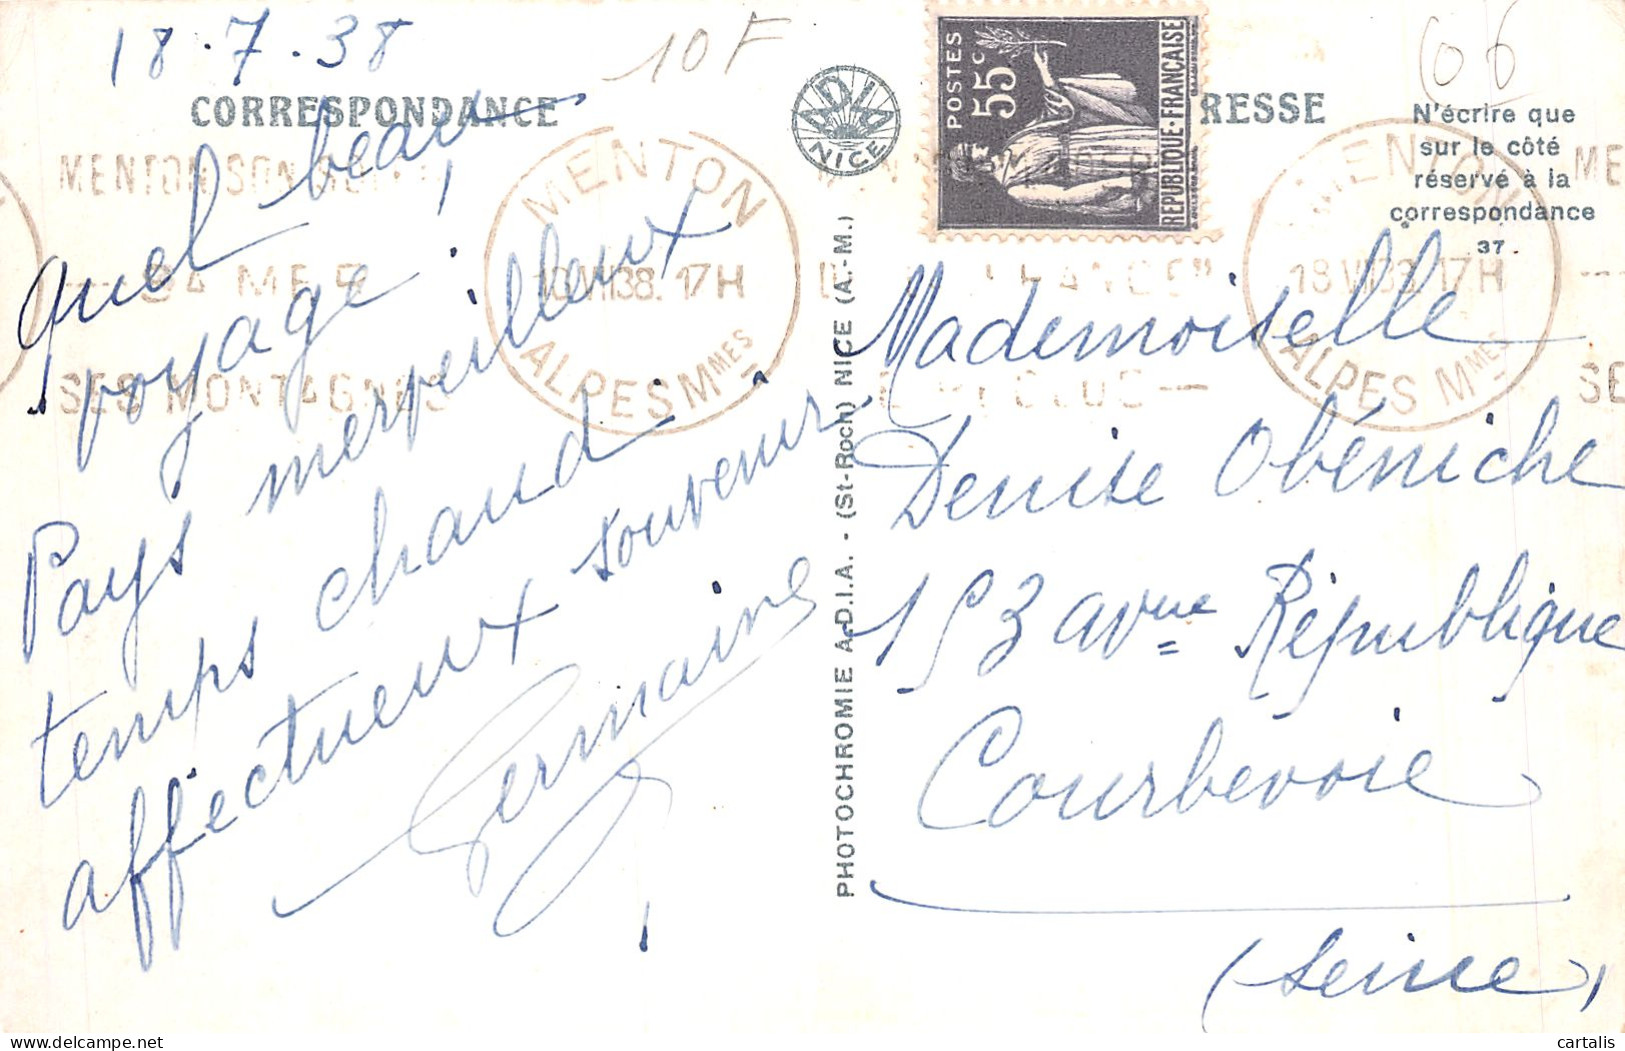 18.7.38
10F
CORRESPONDANCE
Quel beau
voyage !
Pays merveilleux
temps chaud
affectueux souvenir
Germaine
MENTON SON
SA MER
SES MONTAGNES
MENTON
18 VII 38. 17H
ALPES Mmes
ADIA
NICE
PHOTOCHROMIE A.D.I.A. - (St-Roch) NICE (A.-M.)
POSTES
55c
REPUBLIQUE·FRANÇAISE
RESSE
06
N'écrire que
sur le côté
réservé à la
correspondance
37
MENTON
18 VII 38. 17H
ALPES Mmes
ME
SE
Mademoiselle
Denise Obéniche
153 avnue République
Courbevoie
(Seine)
cartalis
delcampe.net